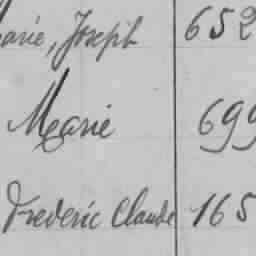 arie, Joseph 652
Marie 699
Frederic Claude 165